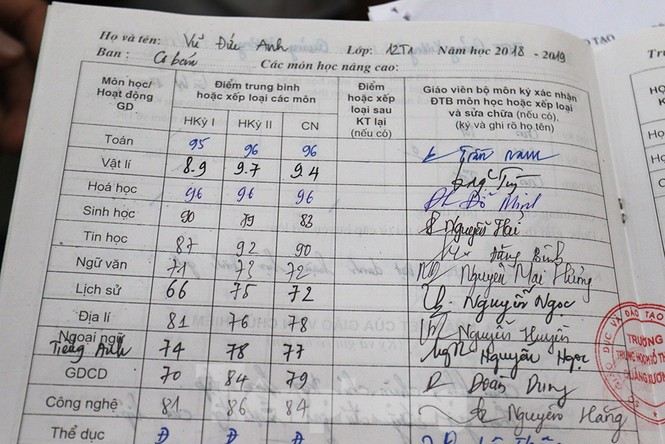 Họ và tên: Vũ Đức Anh Lớp: 12T1 Năm học 2018 - 2019
Ban: Cơ bản Các môn học nâng cao:
Môn học/ Hoạt động GD Điểm trung bình hoặc xếp loại các môn Điểm hoặc xếp loại sau KT lại (nếu có) Giáo viên bộ môn ký xác nhận ĐTB môn học hoặc xếp loại và sửa chữa (nếu có), (ký và ghi rõ họ tên)
HKỳ I HKỳ II CN
Toán 95 96 96 Trần Nam
Vật lí 8.9 9.7 9.4
Hoá học 96 96 96 Đỗ Minh
Sinh học 90 79 83 Nguyễn Hải
Tin học 87 92 90 Đặng Bình
Ngữ văn 71 73 72 Nguyễn Mai Hưởng
Lịch sử 66 75 72 Nguyễn Ngọc
Địa lí 81 76 78 Nguyễn Huyền
Ngoại ngữ Tiếng Anh 74 78 77 Nguyễn Ngọc
GDCD 70 84 79 Đoàn Dung
Công nghệ 81 86 84 Nguyễn Hằng
Thể dục Đ Đ Đ
VÀ ĐÀO TẠO
TRƯỜNG
TRUNG HỌC PHỔ TH
QUẢNG XƯƠNG